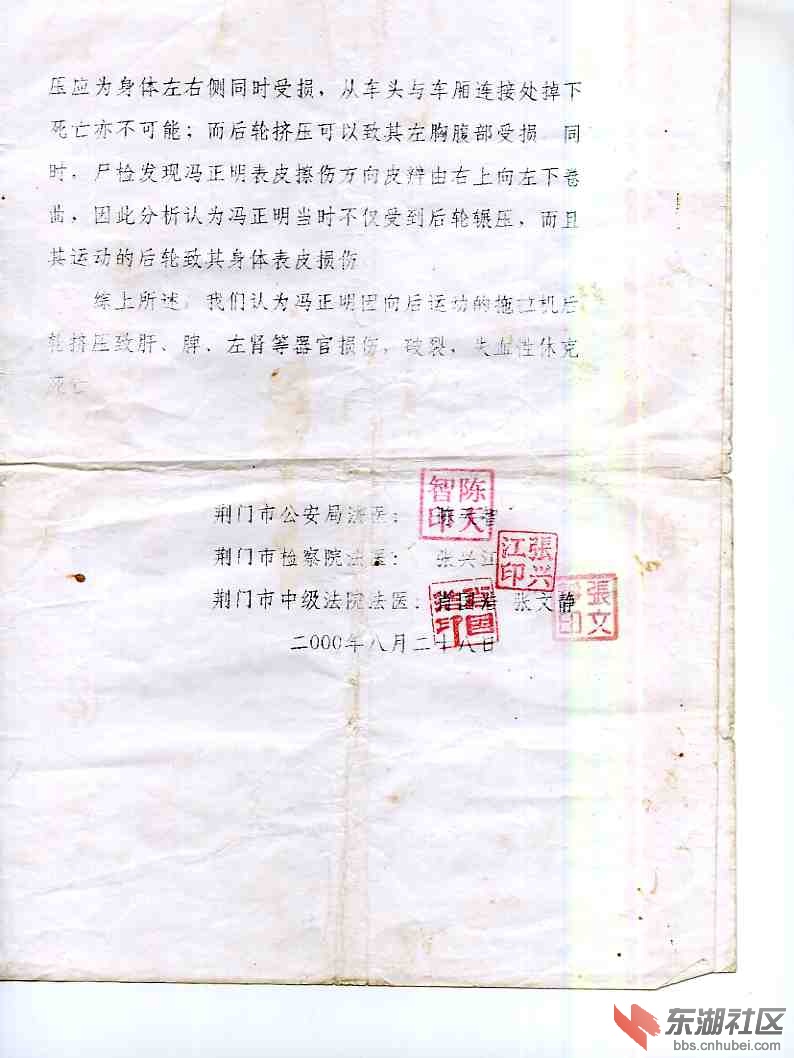 压应为身体左右侧同时受损，从车头与车厢连接处掉下
死亡亦不可能；而后轮挤压可以致其左胸腹部受损。同
时，尸检发现冯正明表皮擦伤方向皮辫由右上向左下卷
曲，因此分析认为冯正明当时不仅受到后轮辗压，而且
其运动的后轮致其身体表皮损伤。
综上所述，我们认为冯正明因向后运动的拖拉机后
轮挤压致肝、脾、左肾等器官损伤，破裂，失血性休克
死亡
荆门市公安局法医：陈天智
陈天智印
荆门市检察院法医：张兴江
張兴江印
荆门市中级法院法医：国 张文静
張文静印
二000年八月二十八日
东湖社区
bbs.cnhubei.com